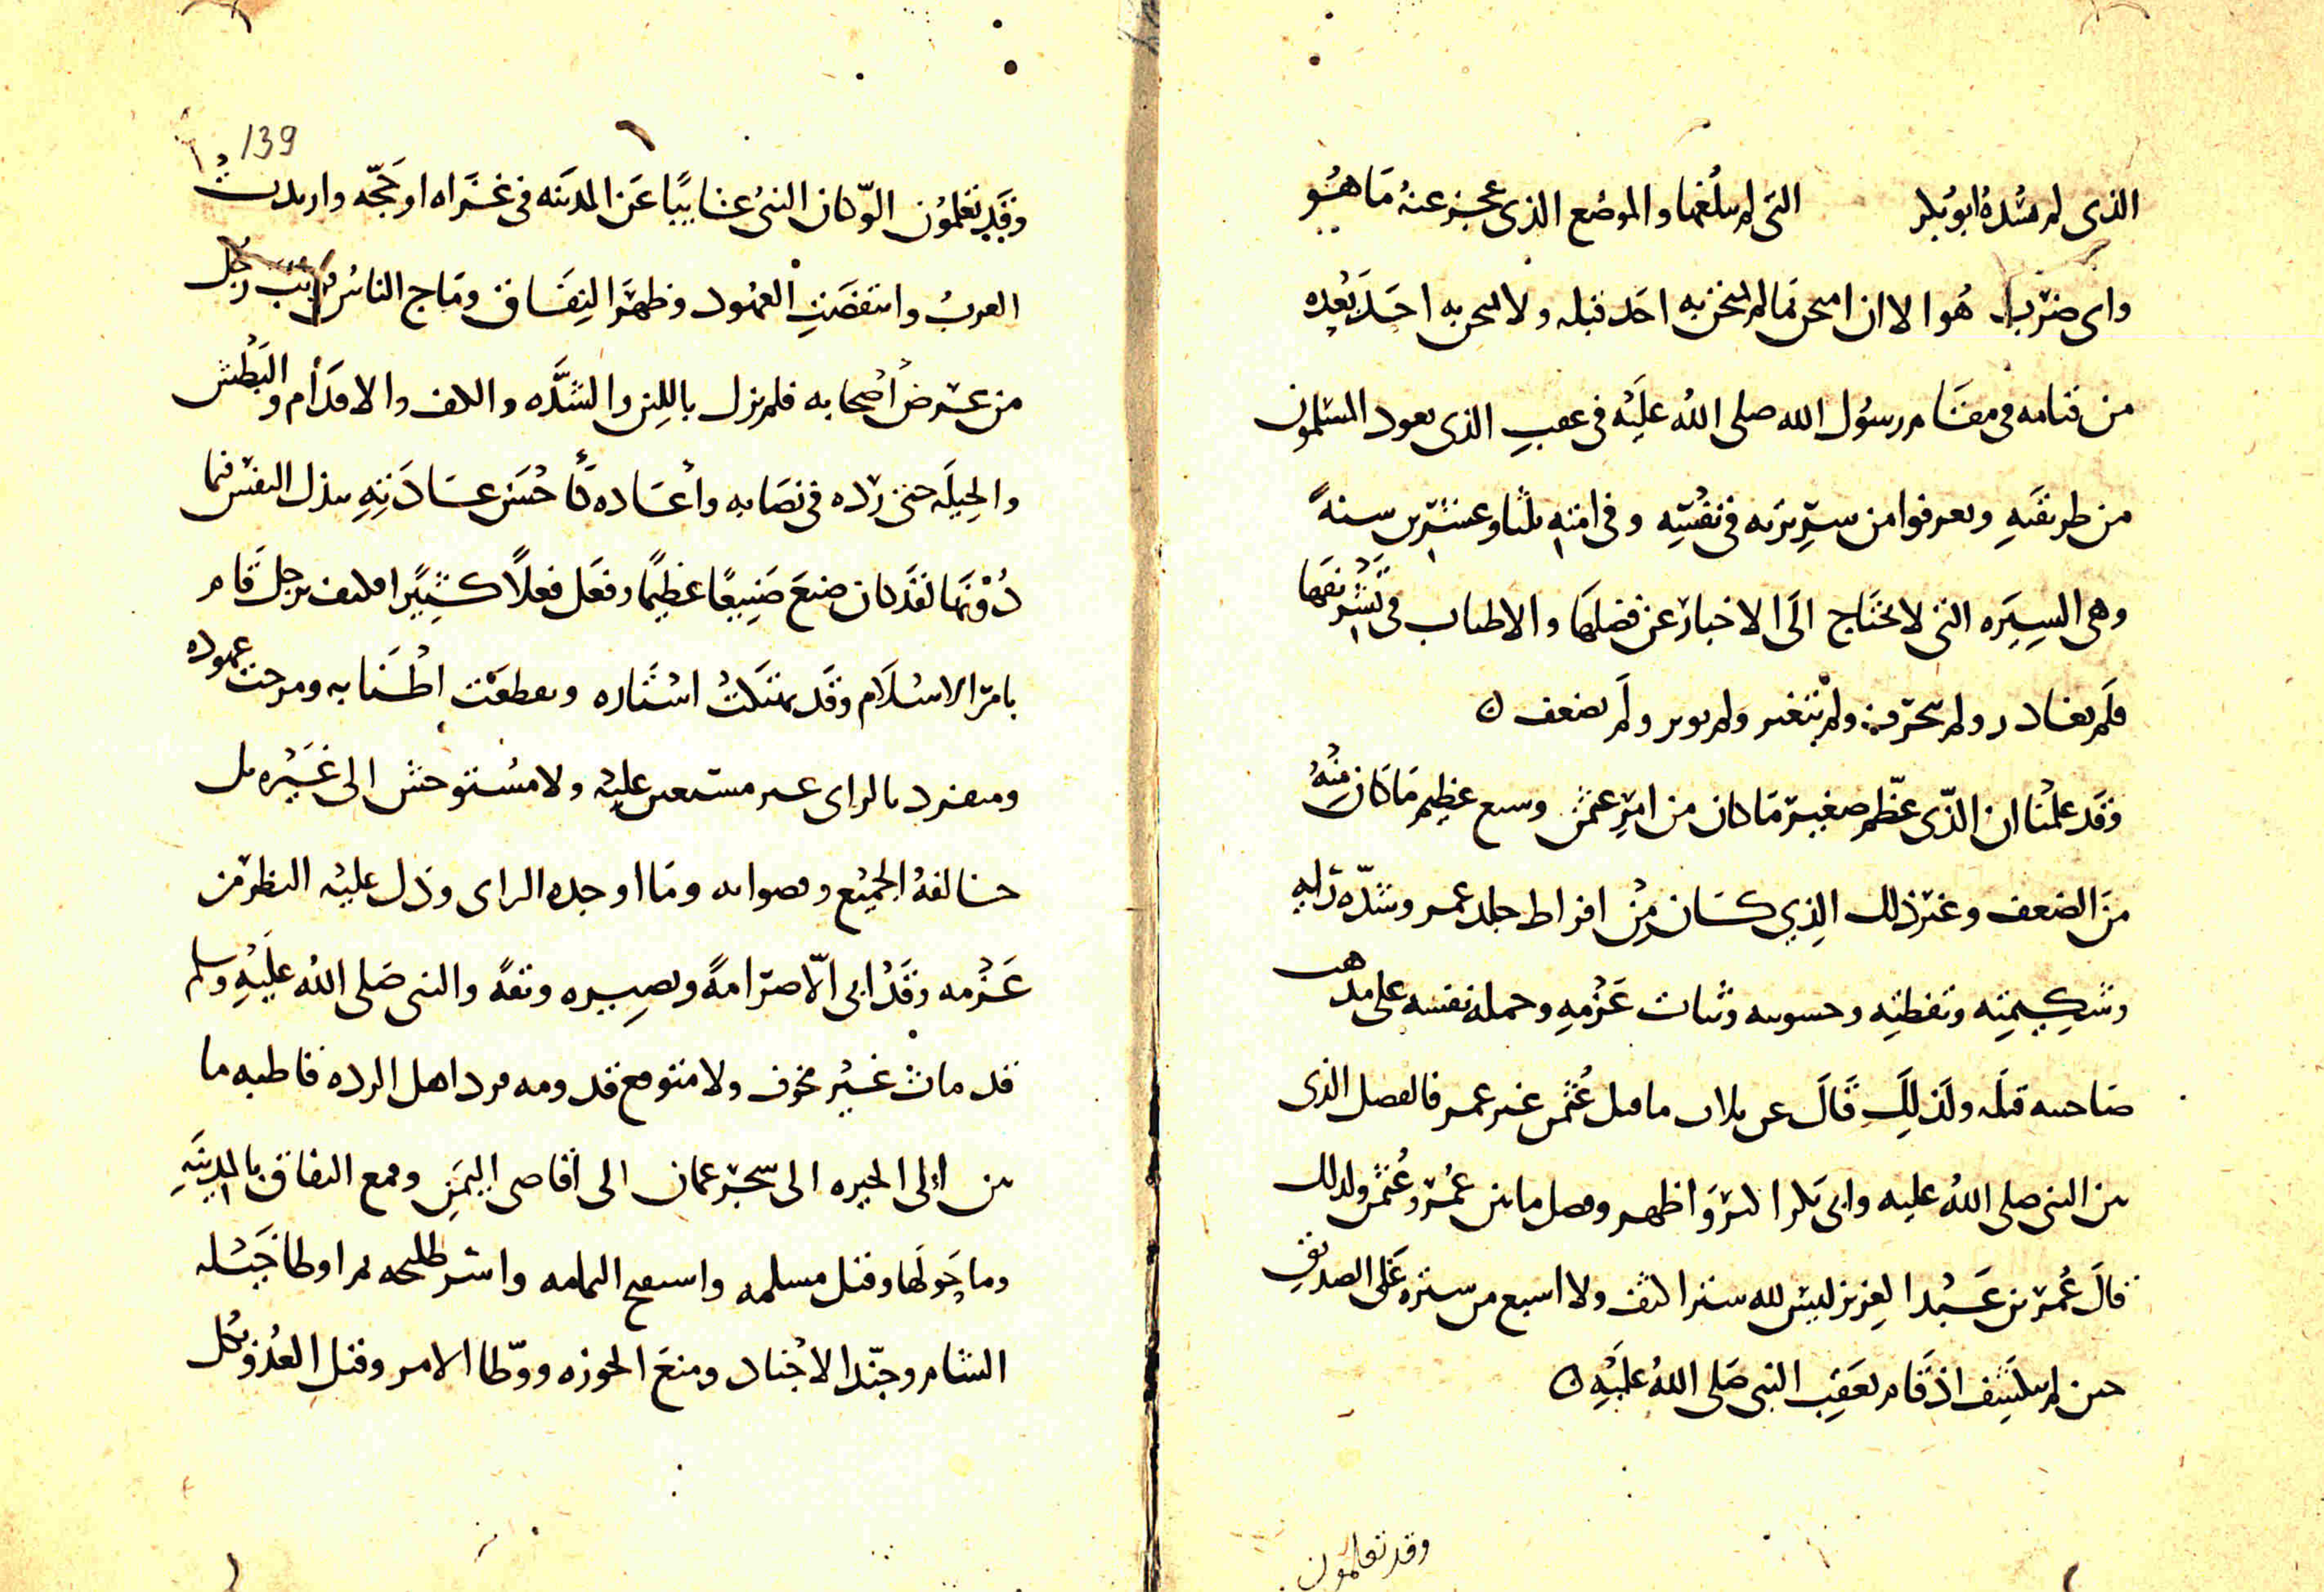 الذى لم يشده ابو بكر التى لم يبلغها والموضع الذى عجز عنه ما هو
واى ضرب هو الا ان امتحن بما لم يمتحن به احد قبله ولا يمتحن به احد بعده
من قيامه فى مقام رسول الله صلى الله عليه فى عقب الذى تعود المسلمون
من طريقته وتعرفوا من سيرته فى نفسه وفى امته ثلثا وعشرين سنة
وهى السيره التى لا تحتاج الى الاخبار عن فضلها والاطناب فى تشريفها
فلم يغادر ولم يتحرف ولم يتغير ولم ولم يضعف
وقد علمنا ان الذى عظم صغير ما كان من امر عثمن عظيم ما كان منه
من الضعف وغير ذلك الذى كان من افراط جلد عمر وشدة رايه
وشكيمته وتفطنه وخشونته وثبات عزمه وحمله نفسه على مذهب
صاحبه قبله ولذلك قال ما قبل عثمن غير عمر فالفصل الذى
بين النبى صلى الله عليه وابى بكر اكثر واظهر وفصل ما بين عمر وعثمن ولذلك
قال عمر بن عبد العزيز ليس لله ستر اكثف ولا اسبغ من ستره على الصديق
حين لم ينكشف اذ قام بعقب النبى صلى الله عليه
وقد تعلمون
139
وقد تعلمون انه كان النبى غايبا عن المدينه فى غزاه او حجه وارتدت
العرب وانتقضت العهود وظهر النفاق وماج الناس رجل
من عرض اصحابه فلم يزل باللين والشده والاقدام والبطش
والحيله حتى رده فى نصابه واعاده كاحسن عادته ببذل النفس فيما
دونها لقد كان صنع صنيعا عظيما وفعل فعلا كثيرا فكيف برجل قام
بامر الاسلام وقد تهتكت استاره وتقطعت اطنابه ومرجت عموده
ومتفرد بالراى غير مستعين عليه ولا مستوحش الى غيره بل
خالفه الجميع وما اوجده الراى ودل عليه النظر من
عزمه وقد ابى الا صرامة وبصيره وثقة والنبى صلى الله عليه وسلم
قد مات غير مخوف ولا متوقع قدومه فرد اهل الرده قاطبه ما
بين الى الحيره الى شحر عمان الى اقاصى اليمن وقمع النفاق بالمدينه
وما حولها وقتل مسلمه واستفتح اليمامه واسر طليحه ثم اوطا خيله
الشام وجند الاجناد ومنع الحوزه ووطا الامر وقتل العدو بكل